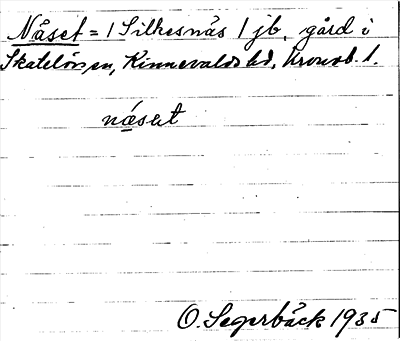 Näset = / Silkesnäs / jb, gård i
Skatelövs sn, Kinnevalds hd, Kronob. l.
näsət
O. Segerbäck 1935